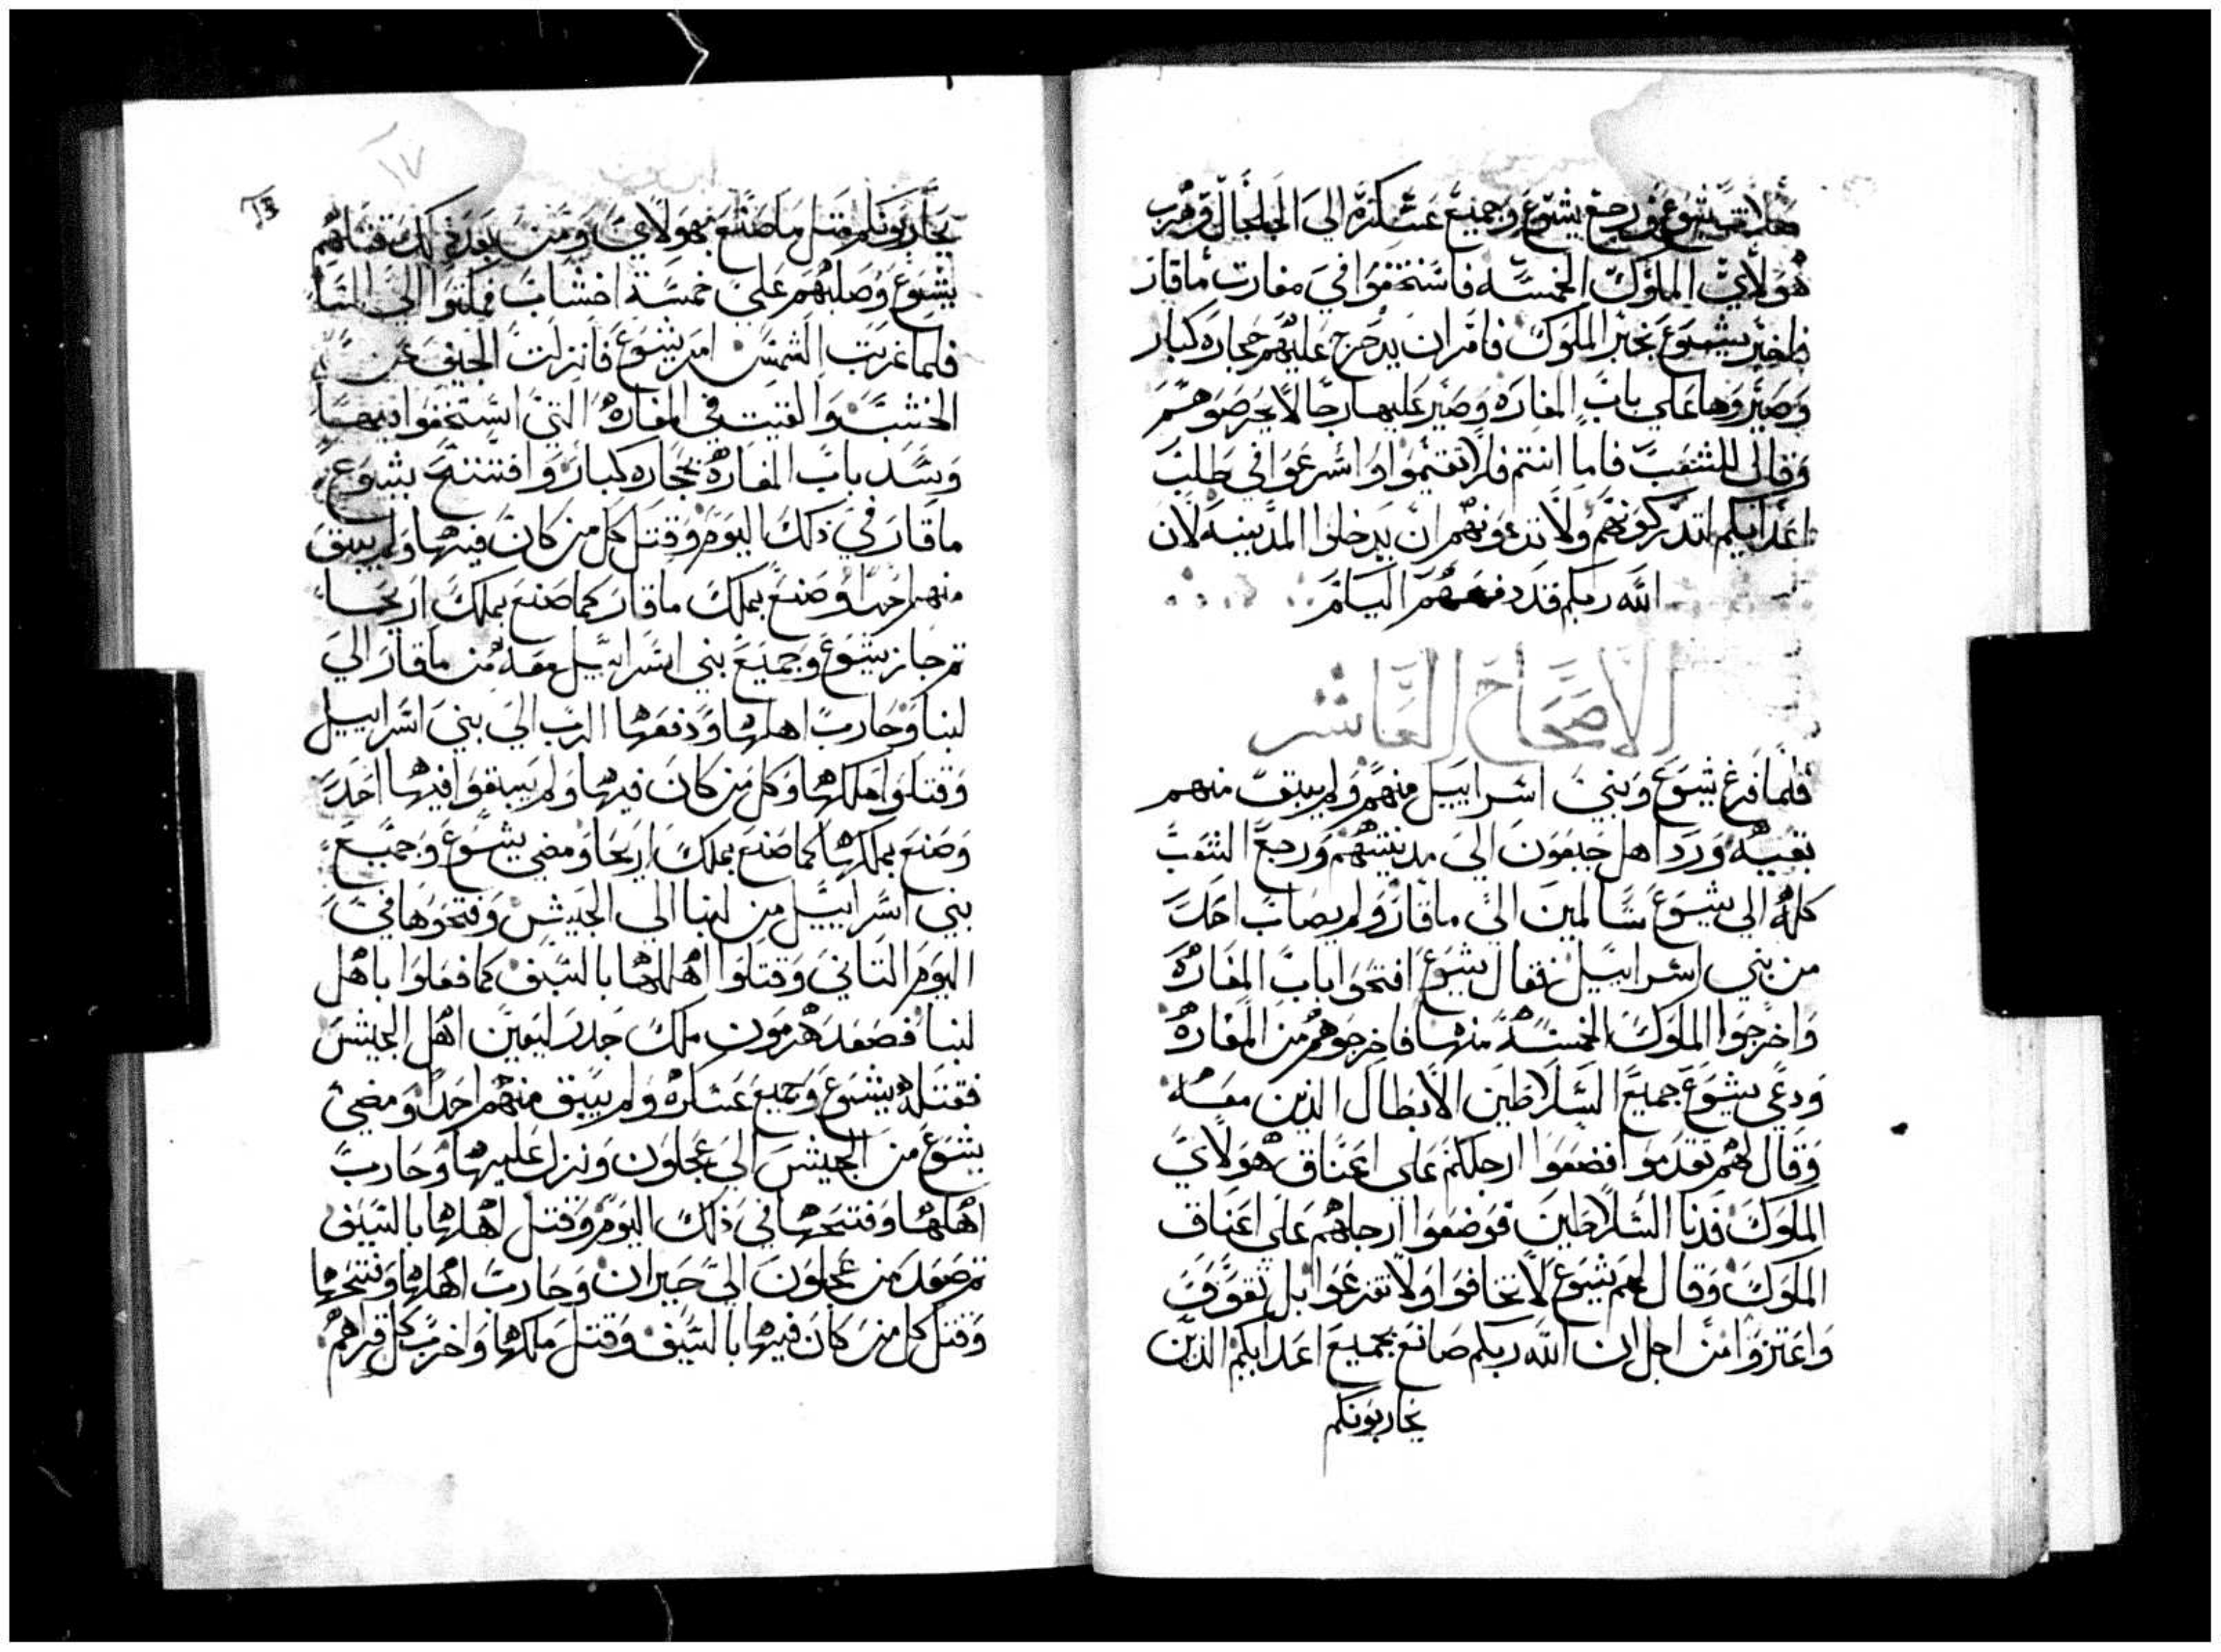 يشوع ورجع يشوع وجميع عسكره الي الجلجال وهرب
هولاي الملوك الخمسه فاستخفوا في مغارت ماقار
فاخبر يشوع بخبر الملوك فامر ان يدحرج عليهم حجاره كبار
وصيروها علي باب المغاره وصير عليها رجالا يحرصوهم
وقال للشعب فاما انتم فلا تقيموا واسرعوا في طلب
اعدايكم لتدركونهم ولا تدعونهم ان يدخلوا المدينه لان
الله ربكم قد دفعهم اليكم
الاصحاح العاشر
فلما فرغ يشوع وبني اسراييل منهم ولم يبق منهم
بقيه ورد اهل جبعون الي مدينتهم ورجع الشعب
كله الي يشوع سالمين الي ماقار ولم يصاب احد
من بني اسراييل فقال يشوع افتحوا باب المغاره
واخرجوا الملوك الخمسه منها فاخرجوهم من المغاره
ودعي يشوع جميع السلاطين الابطال الذين معه
وقال لهم تقدموا فضعوا ارجلكم علي اعناق هولاي
الملوك فدنا السلاطين فوضعوا ارجلهم علي اعناق
الملوك وقال لهم يشوع لا تخافوا ولا تفزعوا بل تقووا
واعتزوا من اجل ان الله ربكم صانع بجميع اعدايكم الذين
يحاربونكم
١٧
13
يحاربونكم مثل ما صنع بهولاي ومن بعد ذلك قتلهم
يشوع وصلبهم علي خمسة اخشاب فمكثوا الي المسا
فلما غربت الشمس امر يشوع فانزلت الجيف عن
الخشب والقيت في المغاره التي استخفوا فيها
وسد باب المغاره بحجاره كبار وافتتح يشوع
ماقار في ذلك اليوم وقتل كل من كان فيها ولم يبق
منهم احدا وصنع بملك ماقار كما صنع بملك اريحا
ثم جاز يشوع وجميع بني اسراييل معه من ماقار الي
لبنا وحارب اهلها ودفعها الرب الي بني اسراييل
وقتلوا ملكها وكل من كان فيها ولم يبقوا فيها احد
وصنع بملكها كما صنع بملك اريحا ومضي يشوع وجميع
بني اسراييل من لبنا الي الجيش وفتحوها في
اليوم التاني وقتلوا اهلها بالسيف كما فعلوا باهل
لبنا فصعد هرمون ملك جدر ليعين اهل الجيش
فقتله يشوع وجميع عسكره ولم يبق منهم احدا ومضي
يشوع من الجيش الي عجلون ونزل عليها وحارب
اهلها وفتحها في ذلك اليوم وقتل اهلها بالسيف
ثم صعد من عجلون الي حبران وحارب اهلها وفتحها
وقتل كل من كان فيها بالسيف وقتل ملكها واخرب كل قراهم